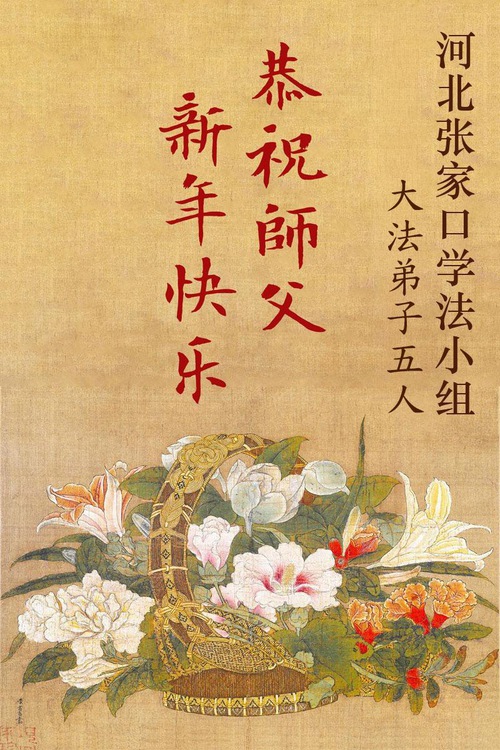 河北张家口学法小组
大法弟子五人
恭祝師父
新年快乐